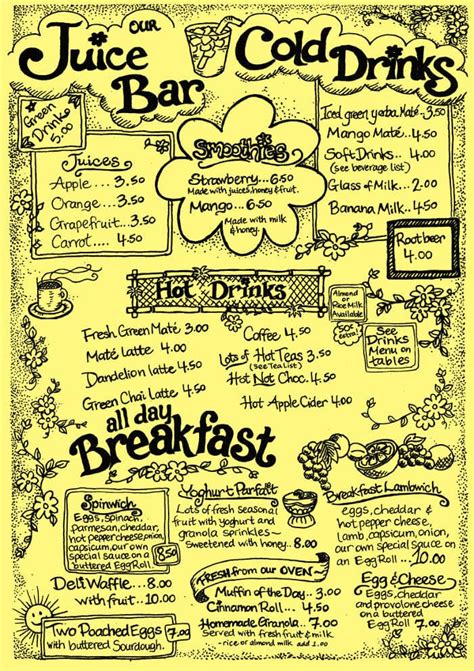 OUR
Juice
Bar
Cold Drinks
Green
Drinks
5.00
Juices
Apple.... 3.50
Orange... 3.50
Grapefruit...3.50
Carrot..... 4.50
Smoothies
Strawberry...6.50
Made with juices, honey & fruit.
Mango.....6.50
Made with milk
& honey.
Iced green yerba Maté..3.50
Mango Maté...4.50
Soft Drinks...4.50
(see beverage list)
Glass of Milk...2.00
Banana Milk..4.50
Rootbeer
4.00
Hot Drinks
Almond
or
Rice Milk
Available
50¢
extra!
See
Drinks
Menu on
tables
Fresh Green Maté 3.00
Maté Latte 4.00
Dandelion latte 4.50
Green Chai Latte 4.50
Coffee 4.50
Lots of Hot Teas 3.50
(see Tea List)
Hot Not Choc. 4.50
Hot Apple Cider 4.00
all day
Breakfast
Spinwich
Eggs, spinach,
parmesan, cheddar,
hot pepper cheese, onion,
capsicum, our own
special sauce on a
buttered Egg Roll
8.50
Deli Waffle....8.00
with fruit....10.00
Two Poached Eggs
with buttered Sourdough.
7.00
Yoghurt Parfait
Lots of fresh seasonal
fruit with yoghurt and
granola sprinkles~
Sweetened with honey..8.00
FRESH from our OVEN~
Muffin of the Day... 3.00
Cinnamon Roll.... 4.50
Homemade Granola... 7.00
Served with fresh fruit & milk
- rice or almond milk add 1.00
Breakfast Lambwich
eggs, cheddar &
hot pepper cheese,
lamb, capsicum, onion,
our own special sauce on
an Egg Roll....10.00
Egg & Cheese
Eggs, cheddar
and provolone cheese
on a buttered
Egg Roll 7.00